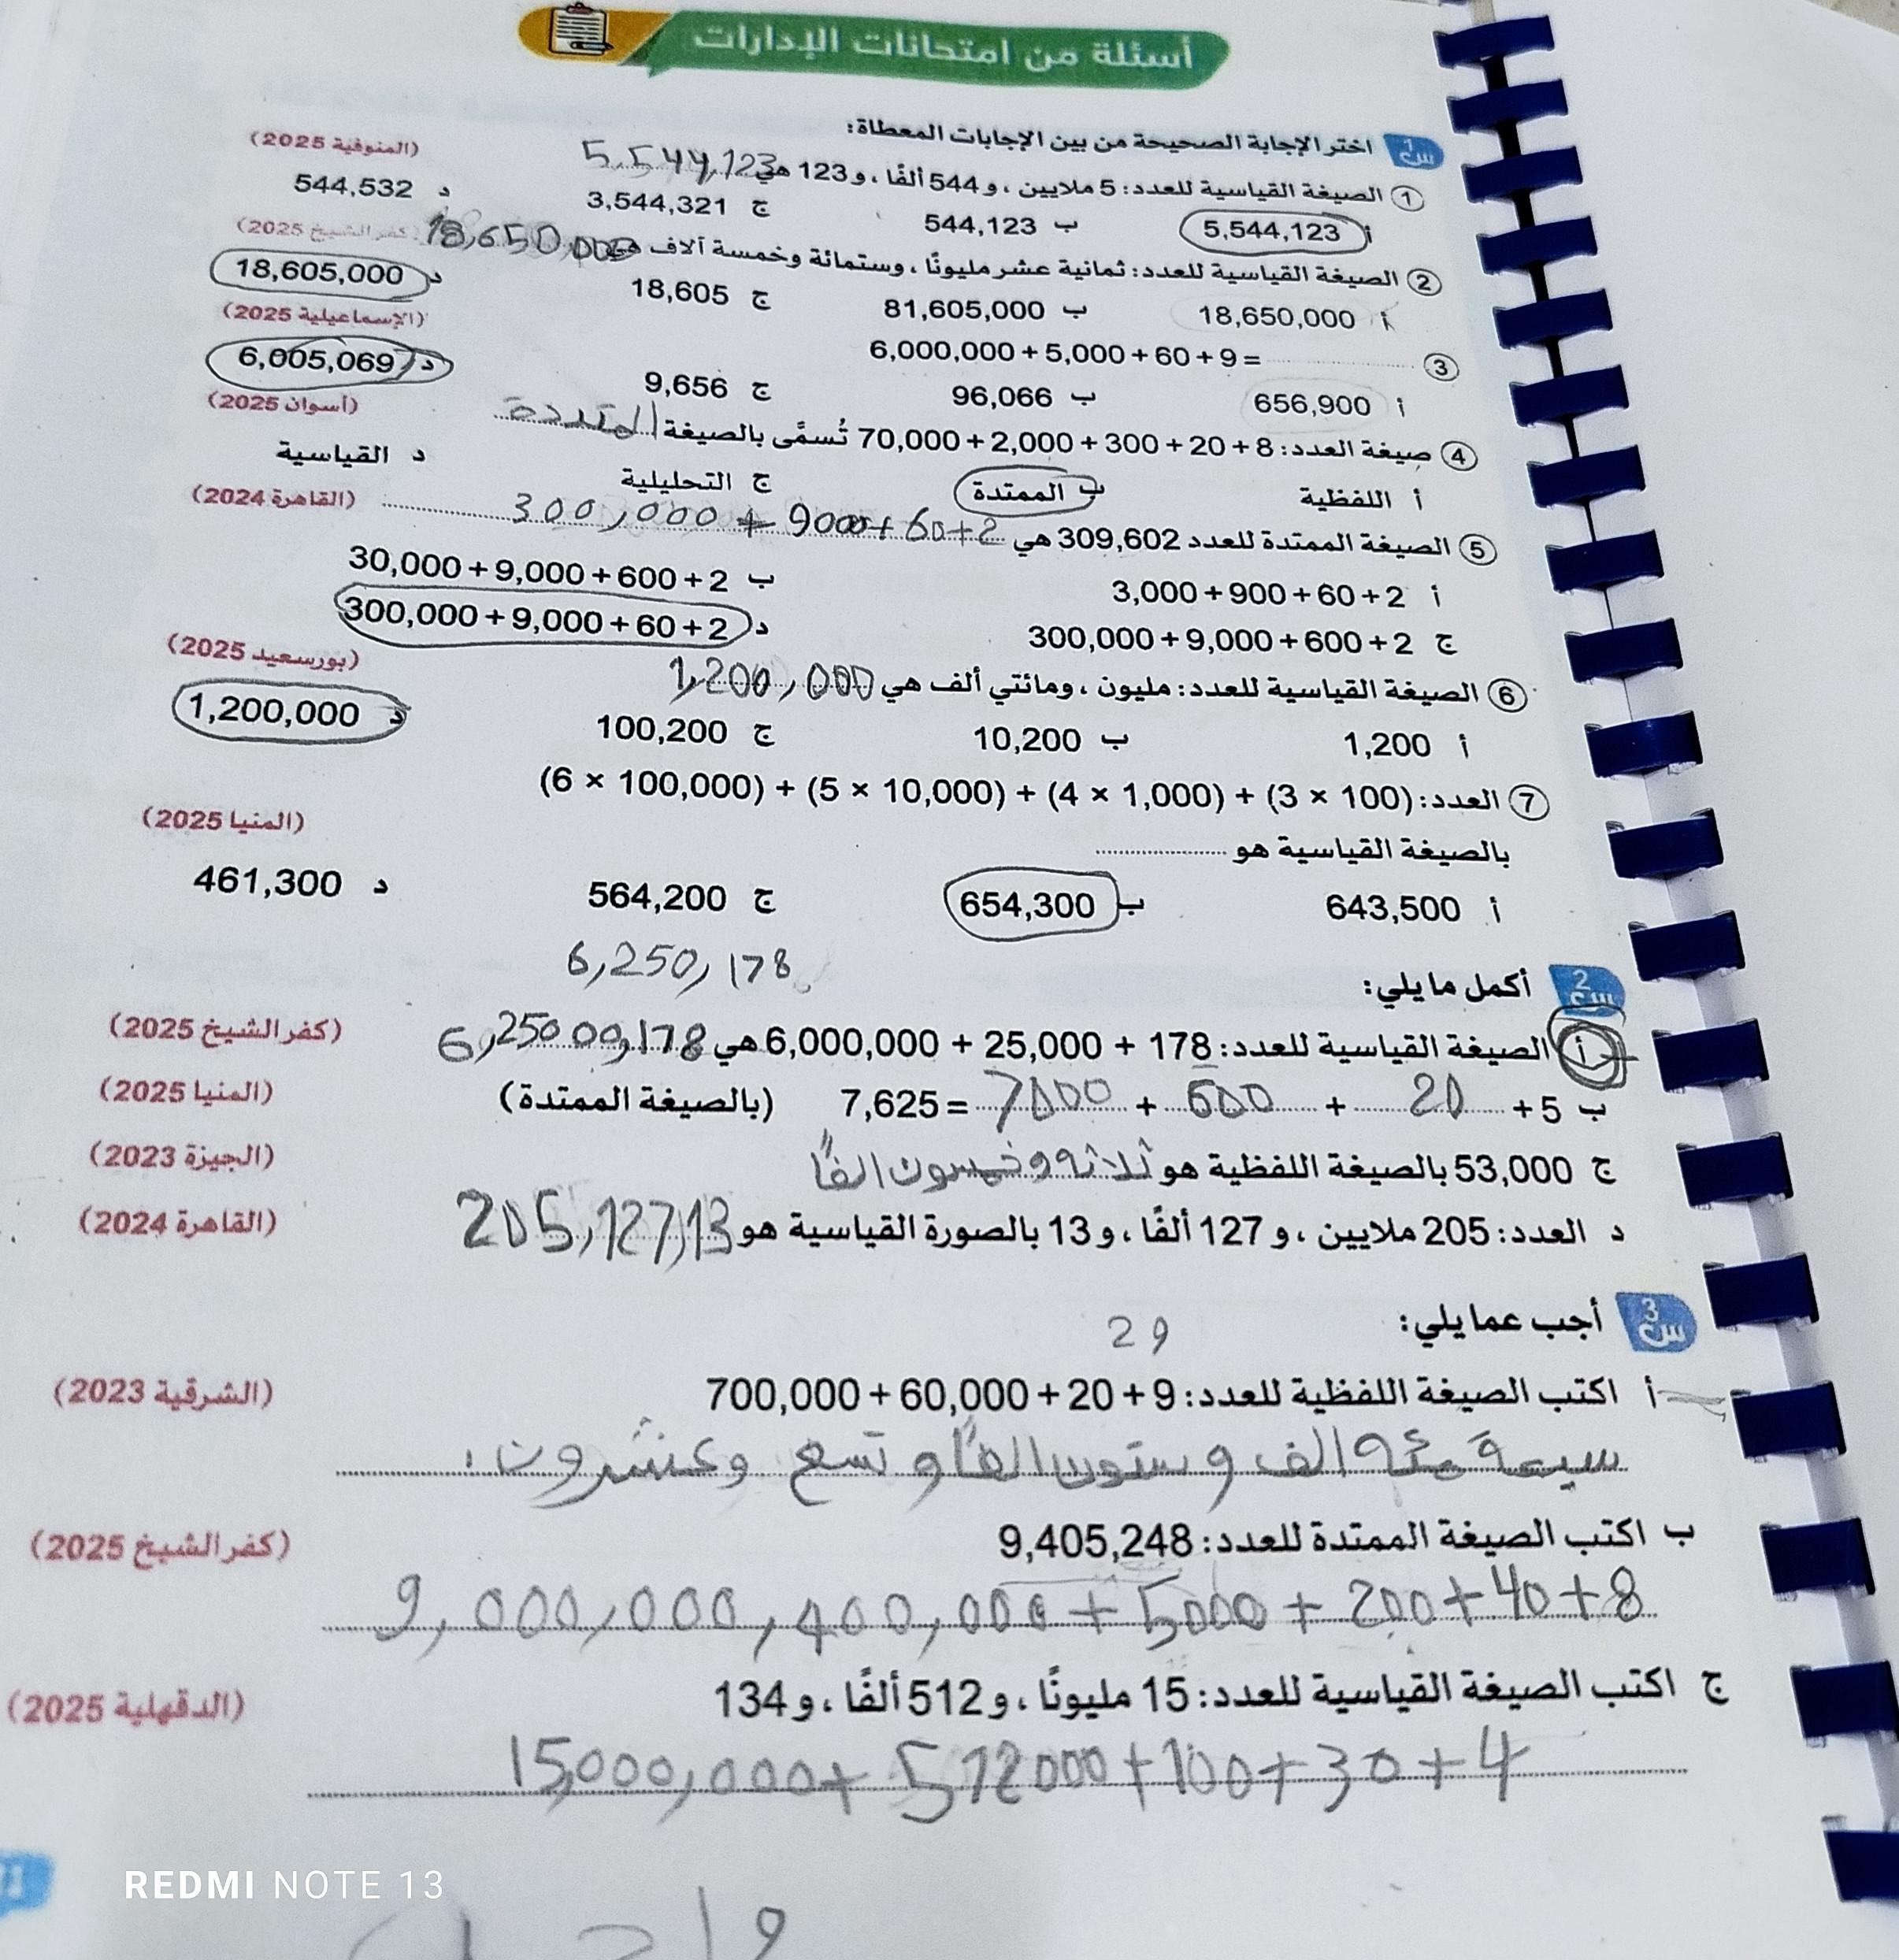 أسئلة من امتحانات الإدارات
س1 اختر الإجابة الصحيحة من بين الإجابات المعطاة:
1 الصيغة القياسية للعدد: 5 ملايين، و 544 ألفًا، و 123 هي 5,544,123 (المنوفية 2025)
أ 5,544,123 ب 544,123 ج 3,544,321 د 544,532
2 الصيغة القياسية للعدد: ثمانية عشر مليونًا، وستمائة وخمسة آلاف هي 18,650,000 (كفر الشيخ 2025)
أ 18,650,000 ب 81,605,000 ج 18,605 د 18,605,000
3 6,000,000 + 5,000 + 60 + 9 = (الإسماعيلية 2025)
أ 656,900 ب 96,066 ج 9,656 د 6,005,069
4 صيغة العدد: 70,000 + 2,000 + 300 + 20 + 8 تُسمَّى بالصيغة (أسوان 2025)
أ اللفظية ب الممتدة ج التحليلية د القياسية
5 الصيغة الممتدة للعدد 309,602 هي 300,000 + 9000 + 60 + 2 (القاهرة 2024)
أ 3,000 + 900 + 60 + 2 ب 30,000 + 9,000 + 600 + 2
ج 300,000 + 9,000 + 600 + 2 د 300,000 + 9,000 + 60 + 2
6 الصيغة القياسية للعدد: مليون، ومائتي ألف هي 1,200,000 (بورسعيد 2025)
أ 1,200 ب 10,200 ج 100,200 د 1,200,000
7 العدد: (6 × 100,000) + (5 × 10,000) + (4 × 1,000) + (3 × 100)
بالصيغة القياسية هو (المنيا 2025)
أ 643,500 ب 654,300 ج 564,200 د 461,300
6,250,178
س2 أكمل ما يلي:
أ الصيغة القياسية للعدد: 6,000,000 + 25,000 + 178 هي (كفر الشيخ 2025)
ب 7,625 = 7000 + 600 + 20 + 5 (بالصيغة الممتدة) (المنيا 2025)
ج 53,000 بالصيغة اللفظية هو ثلاثة وخمسون الفًا (الجيزة 2023)
د العدد: 205 ملايين، و 127 ألفًا، و 13 بالصورة القياسية هو 205,127,13 (القاهرة 2024)
س3 أجب عما يلي:
29
أ اكتب الصيغة اللفظية للعدد: 700,000 + 60,000 + 20 + 9 (الشرقية 2023)
سبعة مئة الف و ستون الفًا و تسع وعشرون.
ب اكتب الصيغة الممتدة للعدد: 9,405,248 (كفر الشيخ 2025)
9,000,000,400,000 + 5000 + 200 + 40 + 8
ج اكتب الصيغة القياسية للعدد: 15 مليونًا، و 512 ألفًا، و 134 (الدقهلية 2025)
15,000,000 + 512000 + 100 + 30 + 4
REDMI NOTE 13